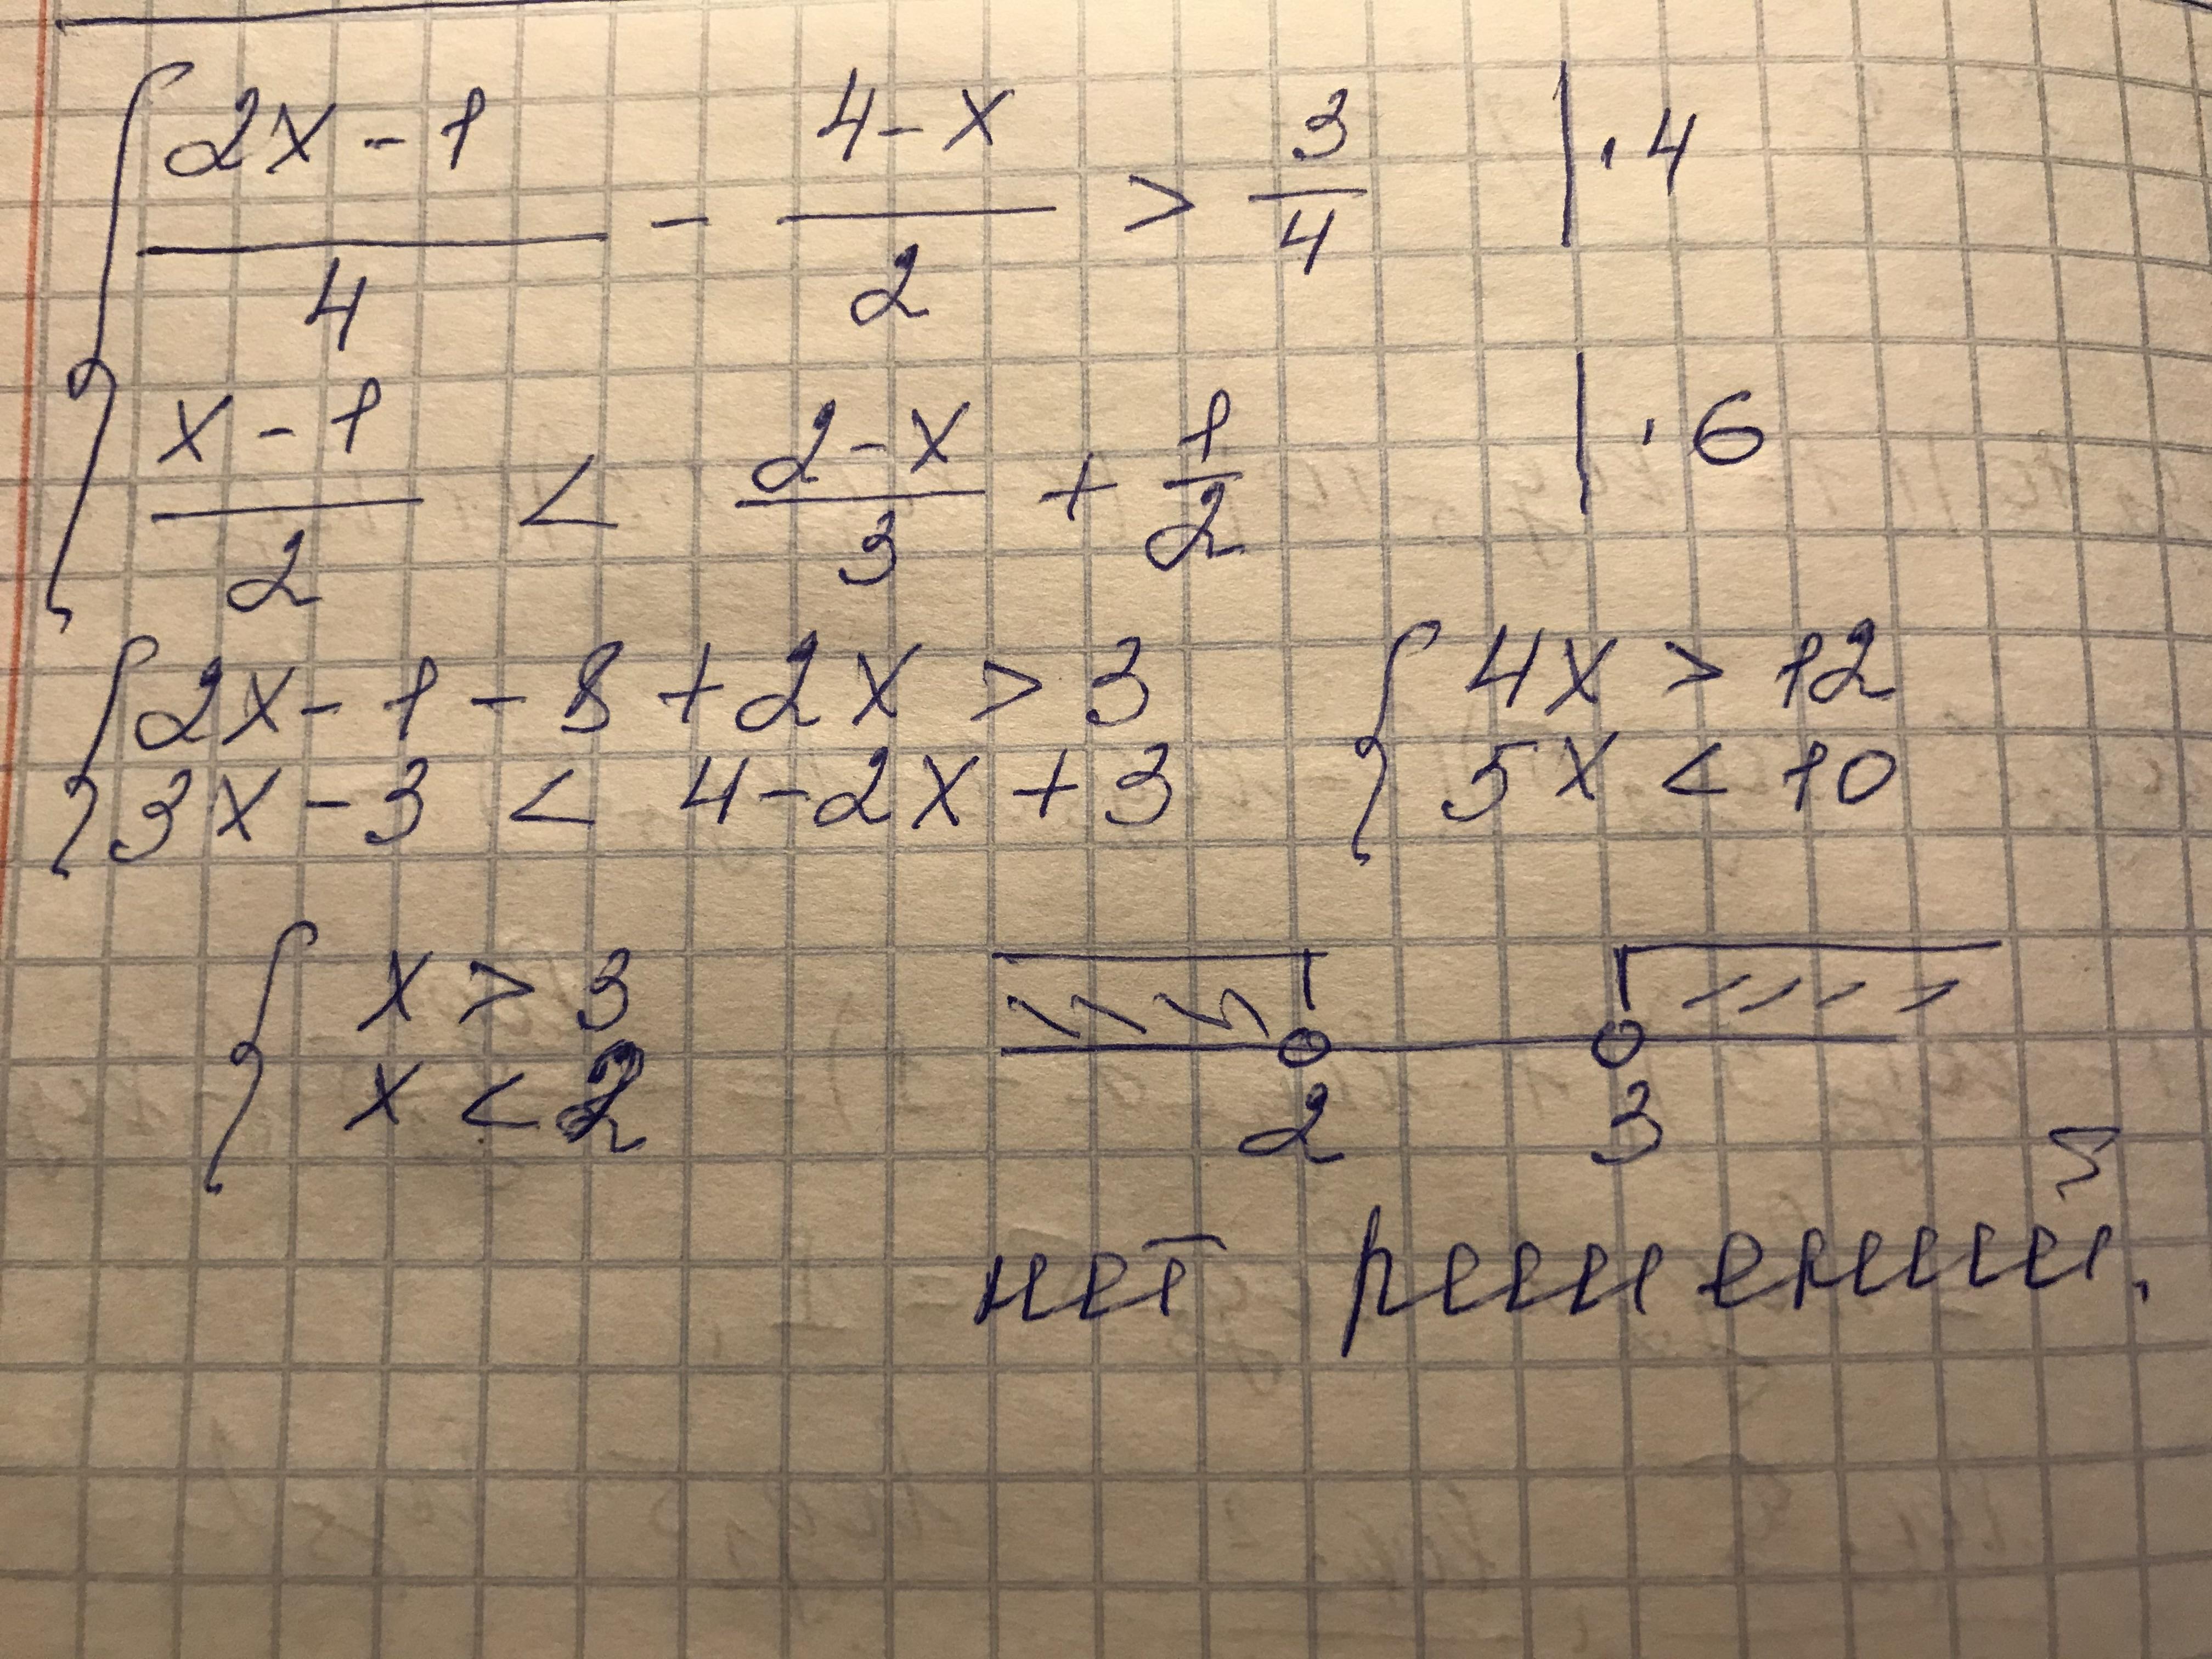 { (2x - 1)/4 - (4 - x)/2 > 3/4 | · 4
(x - 1)/2 < (2 - x)/3 + 1/2 | · 6
{ 2x - 1 - 8 + 2x > 3 { 4x > 12
3x - 3 < 4 - 2x + 3 5x < 10
{ x > 3
x < 2
2 3
нет решений.